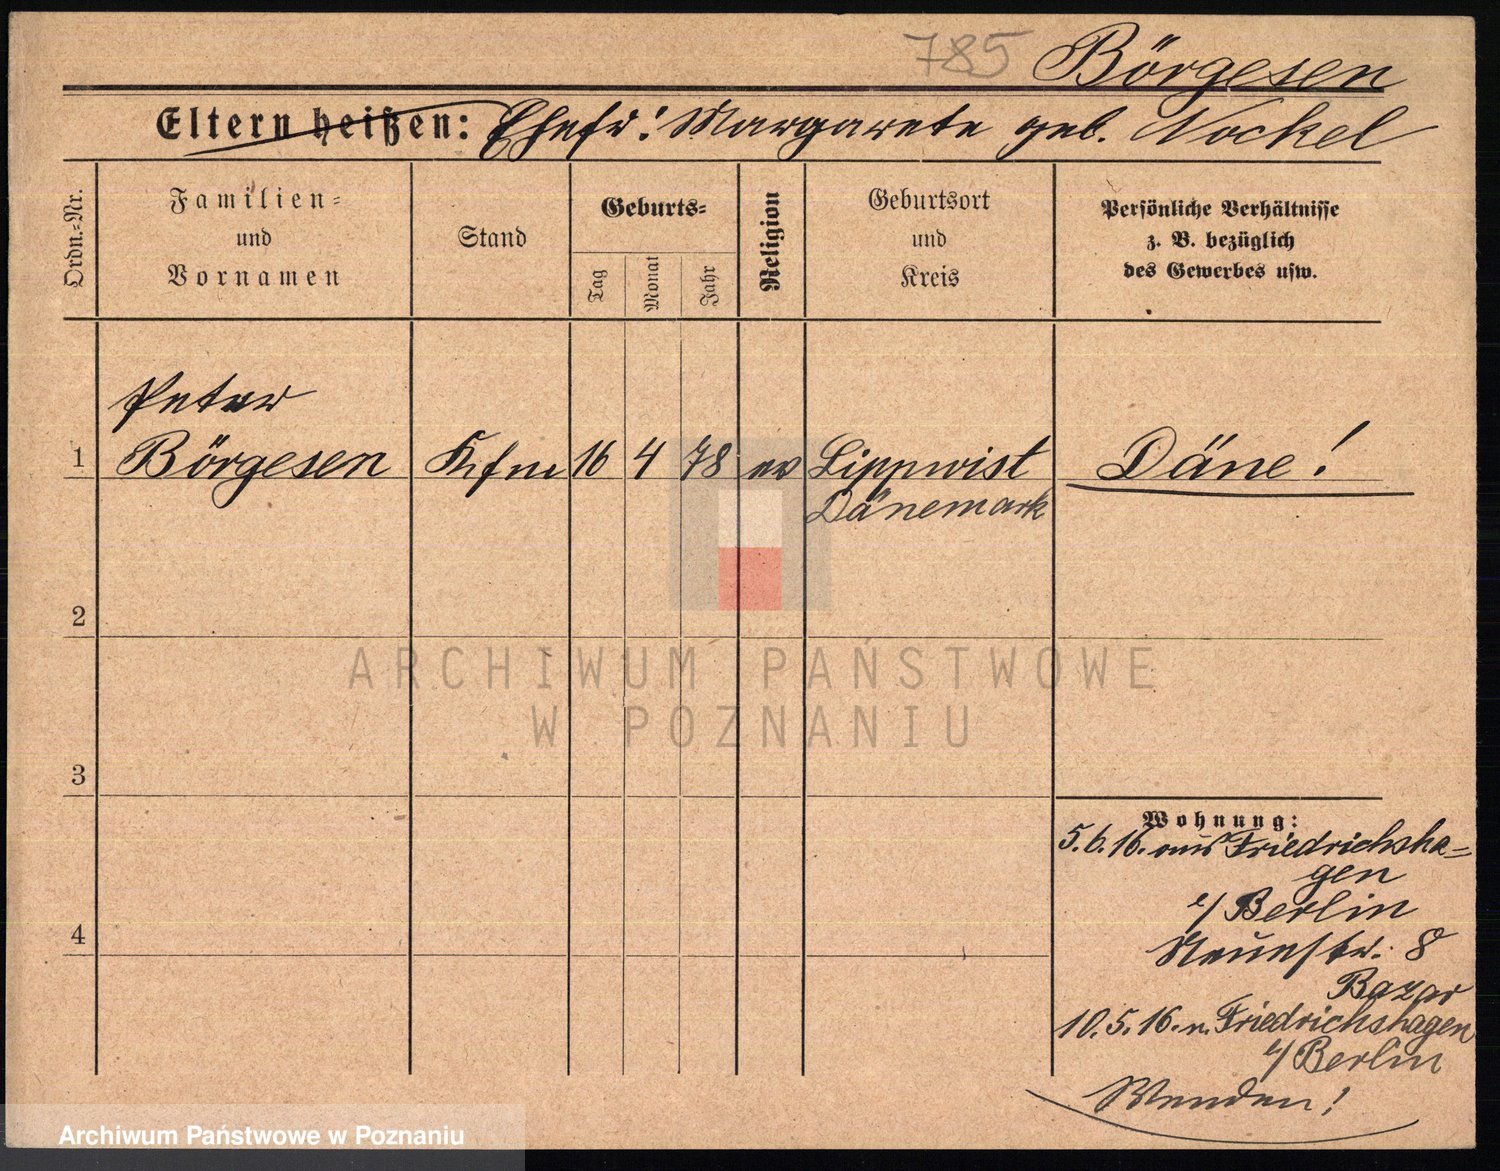 785 Börgesen
Eltern heißen: Ehefr: Margarete geb. Nockel
Ordn.-Nr.
Familien-
und
Vornamen
Stand
Geburts-
Tag
Monat
Jahr
Religion
Geburtsort
und
Kreis
Persönliche Verhältnisse
z. B. bezüglich
des Gewerbes usw.
Peter
1 Börgesen Kfm 16 4 78 ev Lippwist Däne!
Dänemark
2
3
4
Wohnung:
5.6.16. aus Friedrichsha-
gen
b/Berlin
Neuestr. 8
Bazar
10.5.16. n. Friedrichshagen
b/Berlin
Wenden!
ARCHIWUM PAŃSTWOWE
W POZNANIU
Archiwum Państwowe w Poznaniu